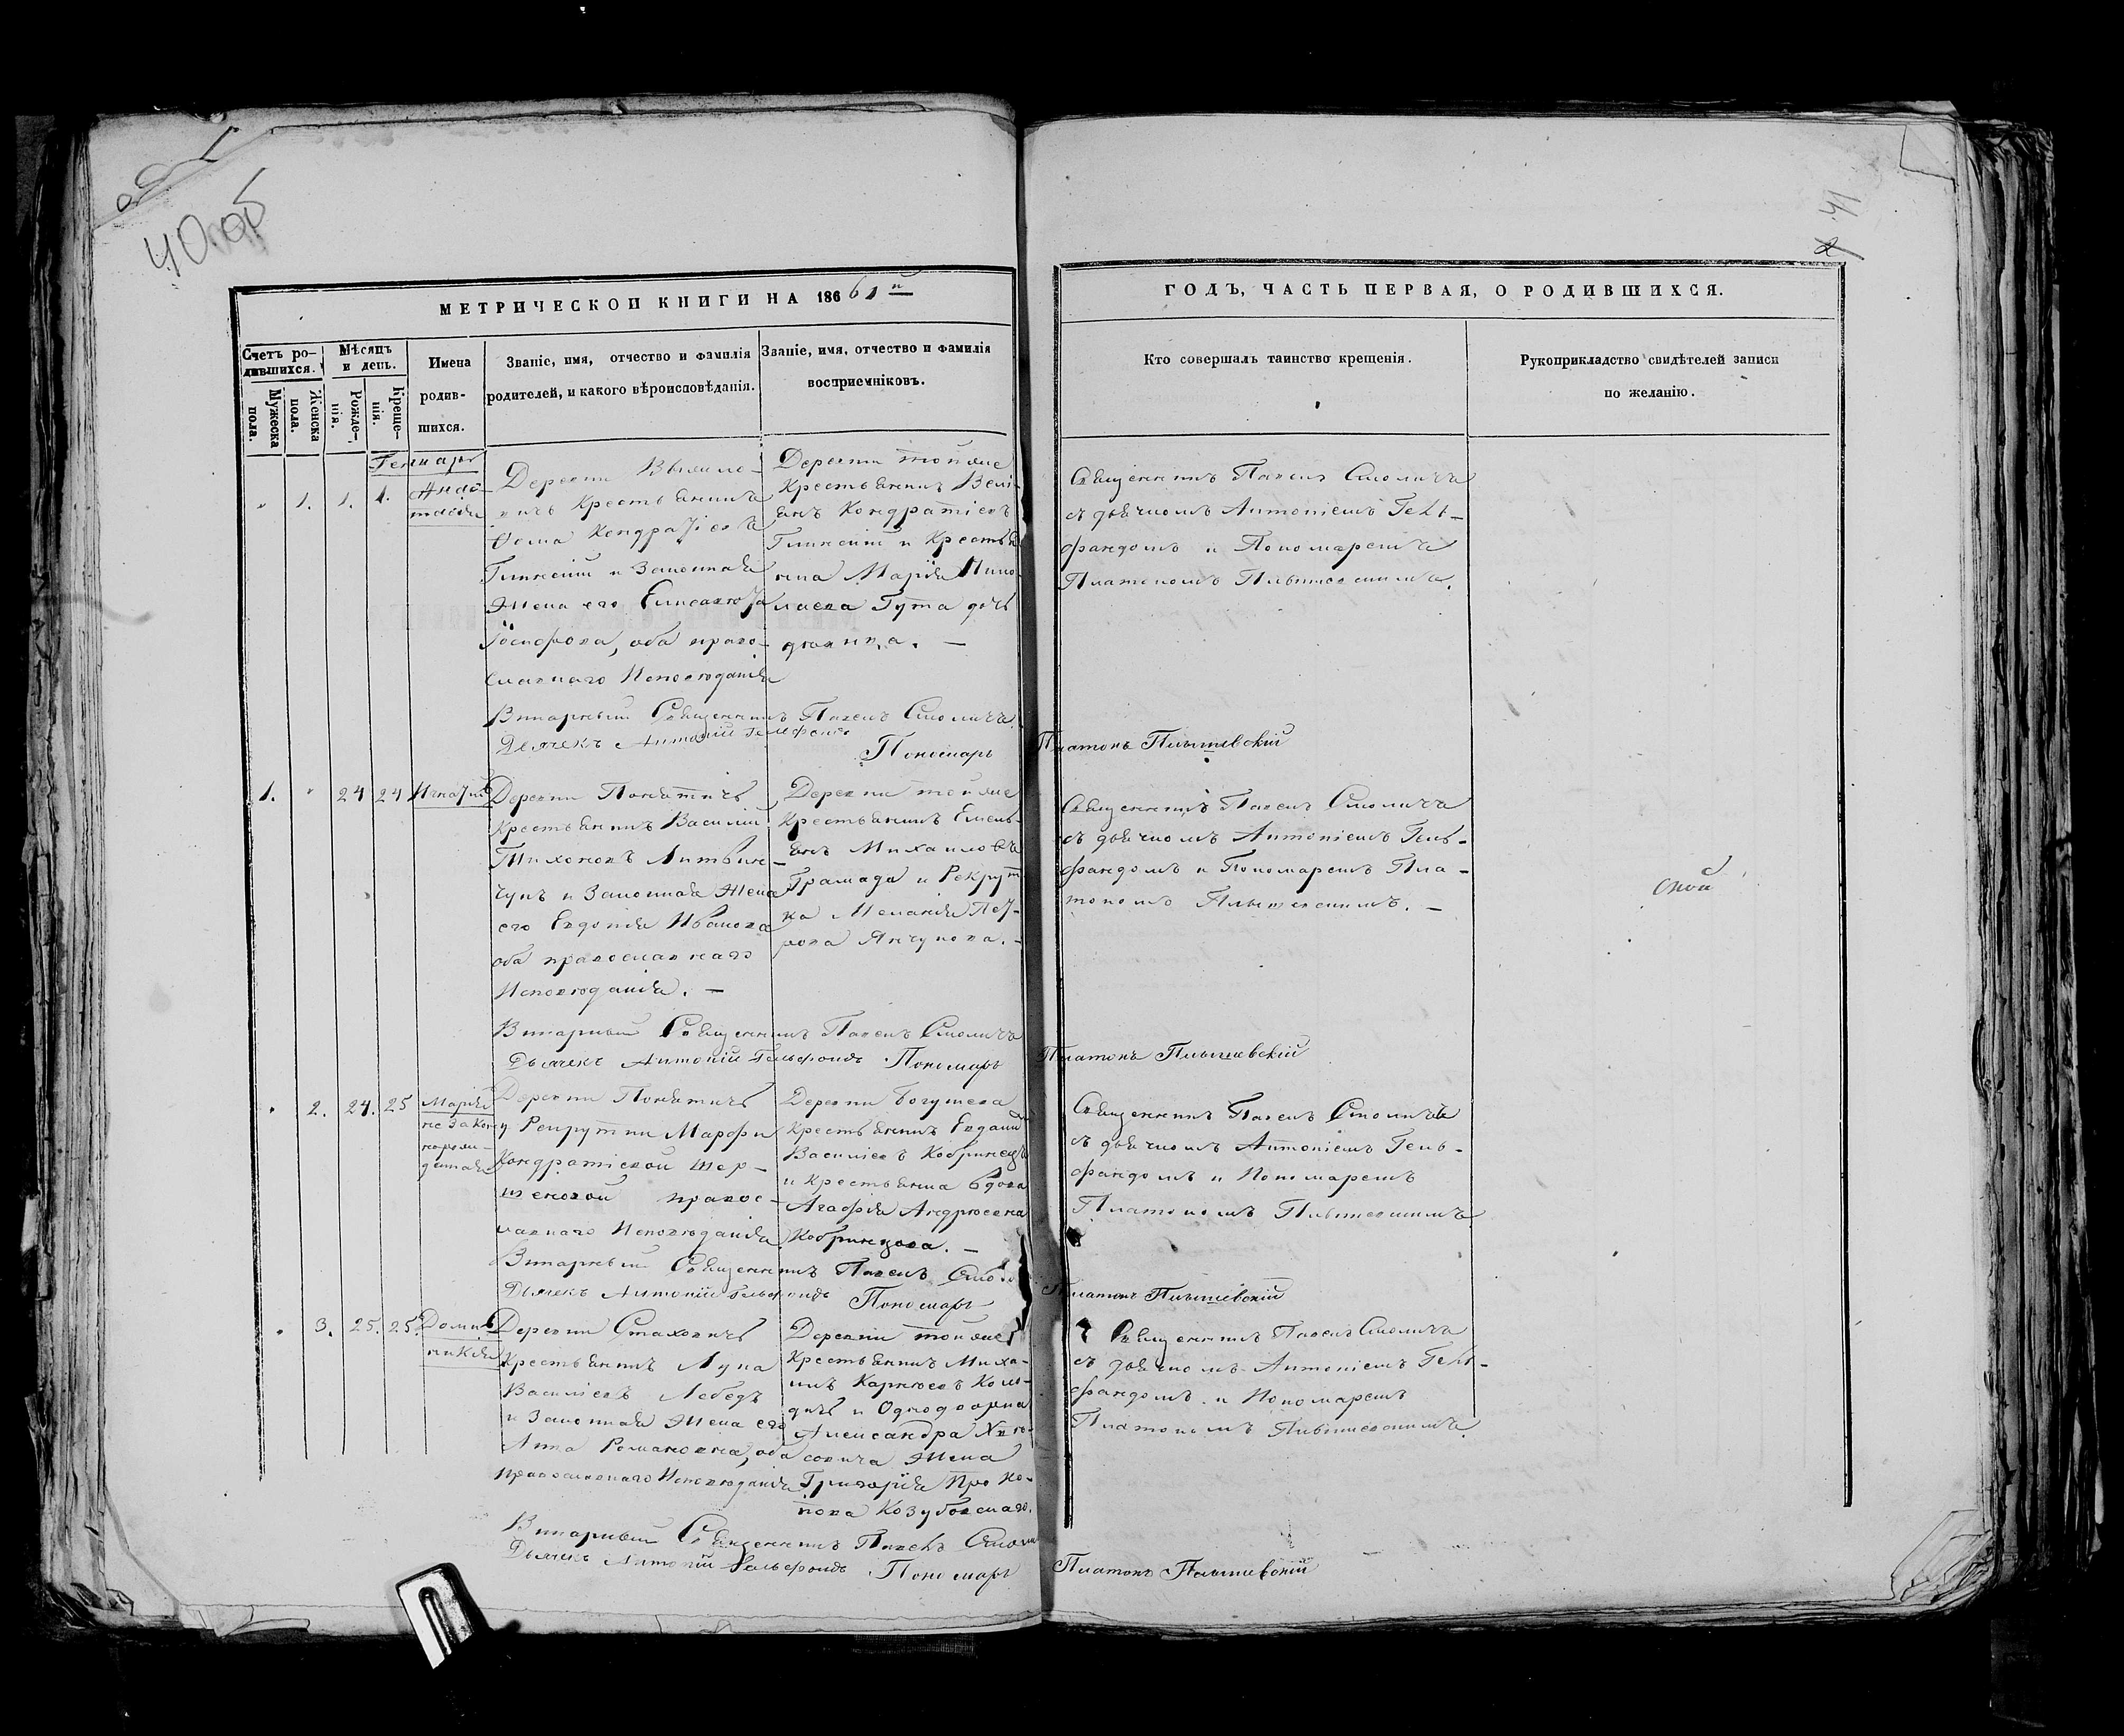 40 об
41
2
МЕТРИЧЕСКОЙ КНИГИ НА 186 61 й
ГОДЪ, ЧАСТЬ ПЕРВАЯ, О РОДИВШИХСЯ.
Счетъ ро-
дившихся.
Мужеска пола.
Женска пола.
Мѣсяцъ и день.
Рожде-нія.
Креще-нія.
Имена
родив-
шихся.
Званіе, имя, отчество и фамилія
родителей, и какого вѣроисповѣданія.
Званіе, имя, отчество и фамилія
воспріемніковъ.
Кто совершалъ таинство крещенія.
Рукоприкладство свидѣтелей записи
по желанію.
Генварь
1. 1. 1.
Деревни
крестьянинъ
Ѳома Кондратіевъ
и Законная
Жена его Елисавета
Іосифова, оба право-
славнаго Исповѣданія
Деревни тойже
Крестьянинъ
Кондратіевъ
и Крестья
нна Марія Нико
лаева Гута дѣв
Священникъ Павелъ Смоличъ
съ дьячкомъ Антоніемъ Гель-
фандомъ и Пономаремъ
Платономъ
Викарный Священникъ Павелъ Смоличъ
Дьячекъ Антоній Гельфондъ
Пономарь Платонъ
1. " 24 24 Игнатій
Деревни Понятичъ
Крестьянинъ Василій
Тихоновъ Литвин-
чукъ и Законная Жена
его Евдокія Иванова
оба православнаго
Исповѣданія. —
Деревни тойже
Крестьянинъ Емель-
янъ Михаиловъ
Грамада и Рекрут
ка Меланія Пет-
рова Янчукова. —
Священникъ Павелъ Смоличъ
съ дьячкомъ Антоніемъ Гель-
фандомъ и Пономаремъ Пла-
тономъ
Викарный Священникъ Павелъ Смоличъ
Дьячекъ Антоній Гельфондъ Пономарь Платонъ
" 2. 24. 25 Марія
незакон
норож-
денная
Деревни Понятичъ
у Рекрутки Марфы
Кондратіевой Шер-
шеновой правос-
лавнаго Исповѣданія
Деревни Богушева
Крестьянинъ
Василіевъ Кобринецъ
и Крестьянка вдова
Агафія Андреева
Кобринцова. —
Священникъ Павелъ Смоличъ
съ дьячкомъ Антоніемъ Гель-
фандомъ и Пономаремъ
Платономъ
Викарный Священникъ Павелъ
Дьячекъ Антоній Гельфондъ
Пономарь Платонъ
" 3. 25. 25. Доми-
никія
Деревни Стаховичъ
Крестьянинъ Лука
Василіевъ Лебедь
и Законная Жена его
Анна Романовна, оба
православнаго Исповѣданія
Деревни тойже
Крестьянинъ Миха-
илъ Карпювъ Коло-
дичъ и Однодворца
Александра
Жена
Григорія Проко-
пова
Священникъ Павелъ Смоличъ
съ дьячкомъ Антоніемъ Гель-
фандомъ и Пономаремъ
Платономъ
Викарный Священникъ Павелъ
Дьячекъ Антоній Гельфондъ Пономарь Платонъ